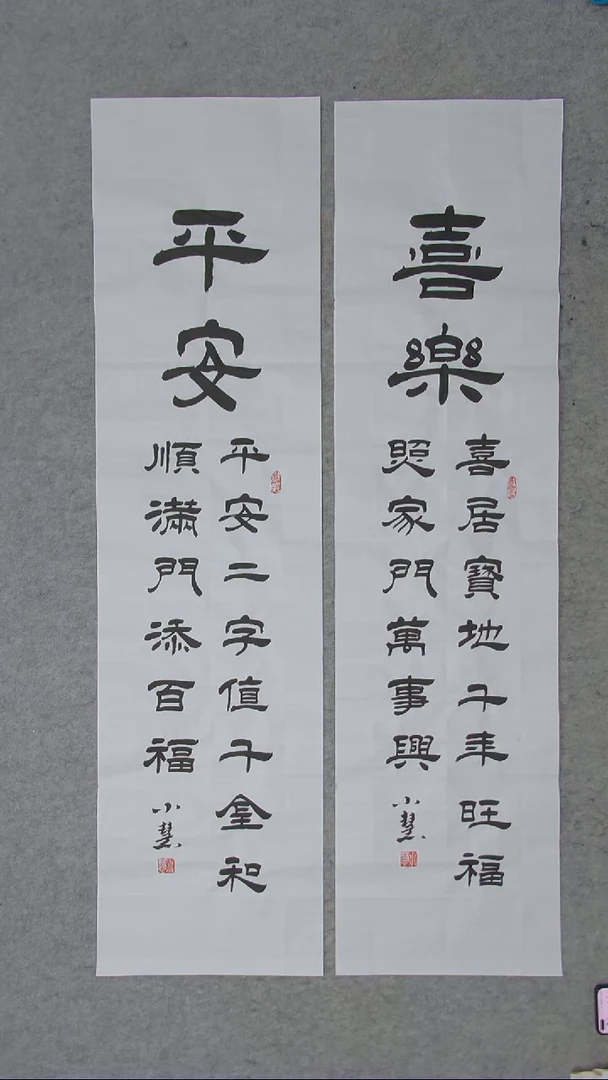 喜樂
喜居寳地千年旺福
照家門萬事興
小慧
平安
平安二字值千金和
順滿門添百福
小慧